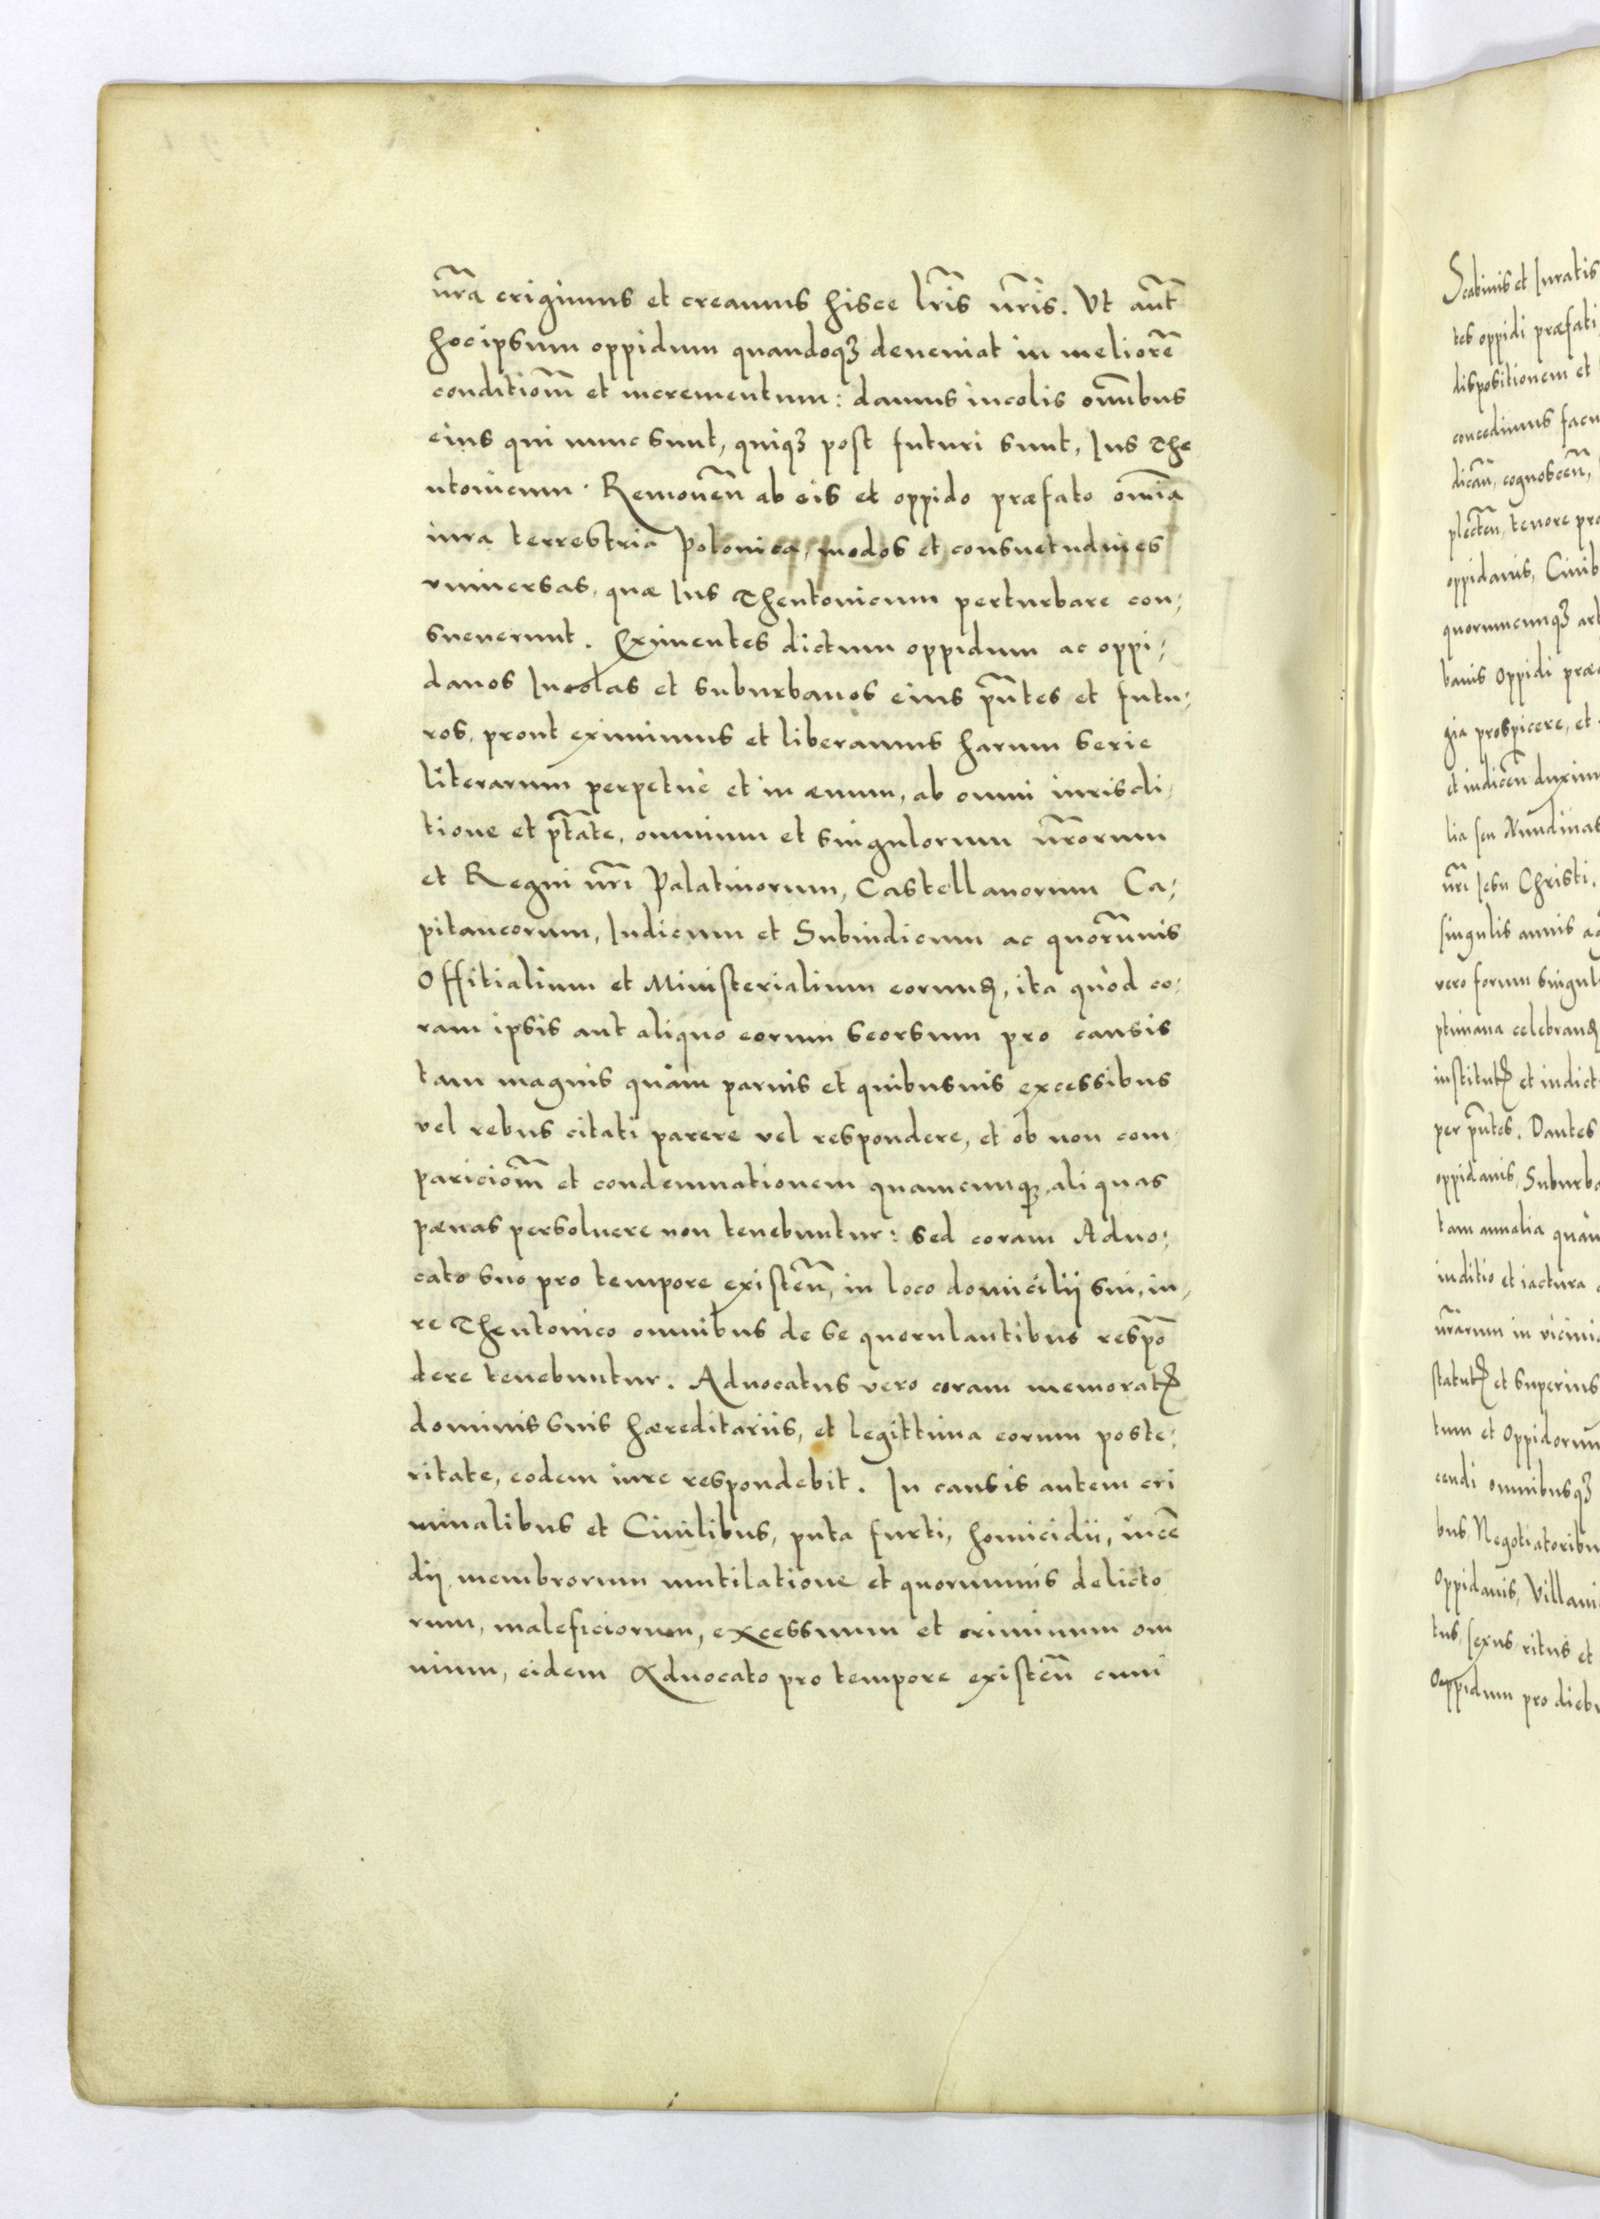 nr̃a erigimus et creamus hisce lr̃is nr̃is. Vt aut̃
hocipsum oppidum quandoqꝫ deueniat in meliorẽ
conditiom̃ et incrementum: damus incolis om̃ibus
eius qui nunc sunt, quiqꝫ post futuri sunt, Ius The
utonicum. Remouen̄ ab eis et oppido præfato om̃ia
iura terrestria Polonica, modos et consuetudines
vniuersas, quæ Ius Theutonicum perturbare con;
sueuerunt. Eximentes dictum oppidum ac oppi;
danos Incolas et suburbanos eius pn̄tes et futu;
ros, prout eximimus et liberamus harum serie
literarum perpetuè et in æuum, ab omni iurisdi,
tione et ptãte, omnium et singulorum nr̃orum
et Regni nr̃i Palatinorum, Castellanorum Ca;
pitaneorum, Iudicum et Subiudicum ac quorũuis
Offitialium et Ministerialium eorund, ita quòd co,
ram ipsis aut aliquo eorum seorsum pro causis
tam magnis quàm paruis et quibusuis excessibus
vel rebus citati parere vel respondere, et ob non com
pariciom̃ et condemnationem quamcunqꝫ aliquas
pænas persoluere non tenebuntur: sed coram Aduo;
cato suo pro tempore existen̄, in loco domicilij sui, iu,
re Theutonico omnibus de se querulantibus respõ
dere tenebuntur. Aduocatus vero coram memoratꝭ
dominis suis hæreditariis, et legittima eorum poste;
ritate, eodem iure respondebit. In causis autem cri
minalibus et Ciuilibus, puta furti, homicidii, incẽ
dij, membrorum mutilatione et quorumuis delicto
rum, maleficiorum, excessuum et criminum om
nium, eidem Aduocato pro tempore existen̄ cum
Scabinis et Iuratis
tes oppidi præfati
dispositionem et
concedimus facu
dicañ, cognoscen̄,
plecten̄, tenore præ
oppidanis, Ciuib
quorumcunqꝫ art
banis Oppidi præ
gia prospicere, et
et indicen̄ duxim
lia seu Nundinas
nr̃i Iesu Christi,
singulis annis
vero forum singul
ptimana celebrand
institutꝭ et indict
per pn̄tes. Dantes
oppidanis, Suburba
tam annalia quàm
inditio et iactura
nr̃arum in vicini
statutꝭ et superius
tum et Oppidorum
cendi omnibusqꝫ
bus, Negotiatoribu
Oppidanis, Villani
tus, sexus ritus et
Oppidum pro diebu